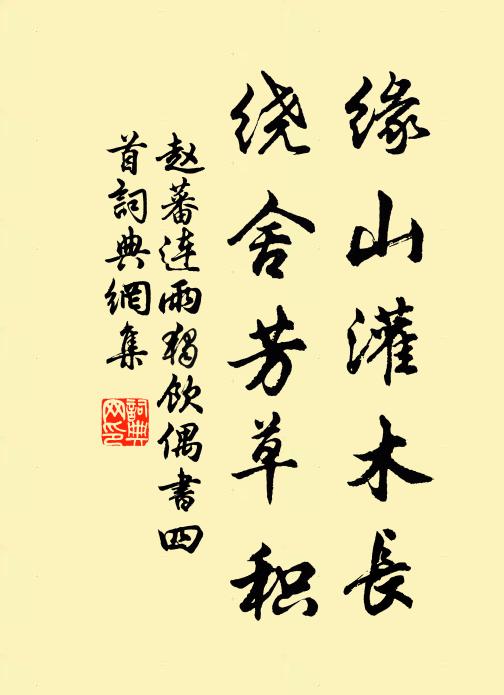 缘山灌木長
绕舍芳草积
赵蕃连雨独饮偶書四
首詞典網集
詞典
网印